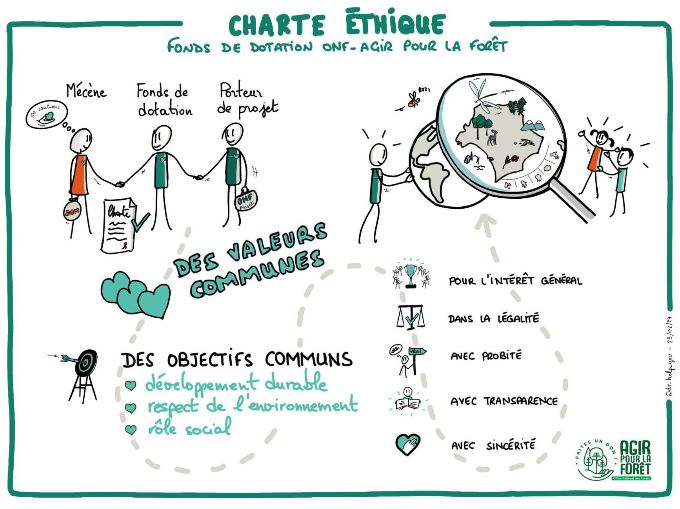 CHARTE ÉTHIQUE
FONDS DE DOTATION ONF-AGIR POUR LA FORÊT
Mécène
Fonds de
dotation
Porteur
de projet
Charte
ONF
DES VALEURS
COMMUNES
POUR L'INTÉRÊT GÉNÉRAL
DANS LA LÉGALITÉ
AVEC PROBITÉ
AVEC TRANSPARENCE
AVEC SINCÉRITÉ
DES OBJECTIFS COMMUNS
développement durable
respect de l'environnement
rôle social
FAITES UN DON !
AGIR
POUR LA
FORÊT